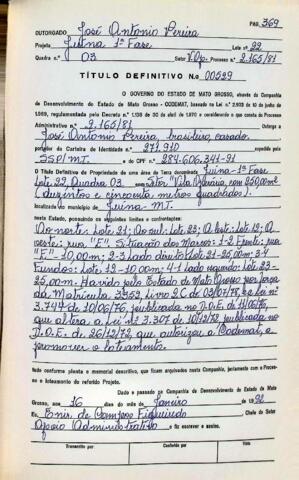 PAG. 369
OUTORGADO José Antonio Pereira
Projeto Juina 1ª Fase Lote nº 22
Quadra nº 03 Setor V.Op. Processo nº 2.165/81
TÍTULO DEFINITIVO No. 00529
O GOVERNO DO ESTADO DE MATO GROSSO, através da Companhia
de Desenvolvimento do Estado de Mato Grosso - CODEMAT, baseado na Lei nº 2.903 de 10 de junho de
1969, regulamentada pelo Decreto n.º 1.138 de 30 de abril de 1970 e considerando o que consta do Processo
Administrativo n.º 2.165/81 outorga a
José Antonio Pereira, brasileiro, casado,
portador da Carteira de Identidade n.º 271.910
SSP/MT. e do CPF nº 284.606.341-91
O Título Definitivo de Propriedade de uma área de Terra denominada Juina-1ª Fase
Lote 22, Quadra 03, Setor "Vila Operária, com 250,00m²
(duzentos e cincoenta metros quadrados).
no Município de Juina-MT.
neste Estado, possuindo os seguintes limites e confrontações:
Ao norte: Lote 21; Ao sul: Lote 23; A leste: Lote 12; A
oeste: rua "F". Situação dos Marcos: 1-2 Frente: rua
"F"-10,00m; 2-3 Lado direito: Lote 21-25,00m 3-4
Fundos: Lote-12-10,00m; 4-1 Lado esquerdo: Lote 23-
25,00m. Havido pelo Estado de Mato Grosso por força
da Matrícula 3359, Livro 2C de 03/07/78, e Lei nº
3.744 de 10/06/76, publicada no D.O.E. de 11/06/76,
que altera a Lei nº 3.307 de 18/12/72, publicada no
D.O.E. de 26/12/72, que autorizou a Codemat, a
promover o loteamento.
tudo conforme planta e memorial descritivo, que ficam arquivados nesta Companhia, juntamente com o Processo
e loteamento do referido Projeto.
Dado e passado na Companhia de Desenvolvimento do Estado de Mato
Grosso, aos 16 dias do mês de Janeiro de 92
Eu, Enir de Campos Figueiredo Chefe do Setor
Apoio Administrativo o fiz escrever e assino.
Transcrito por: Conferido por: Visto